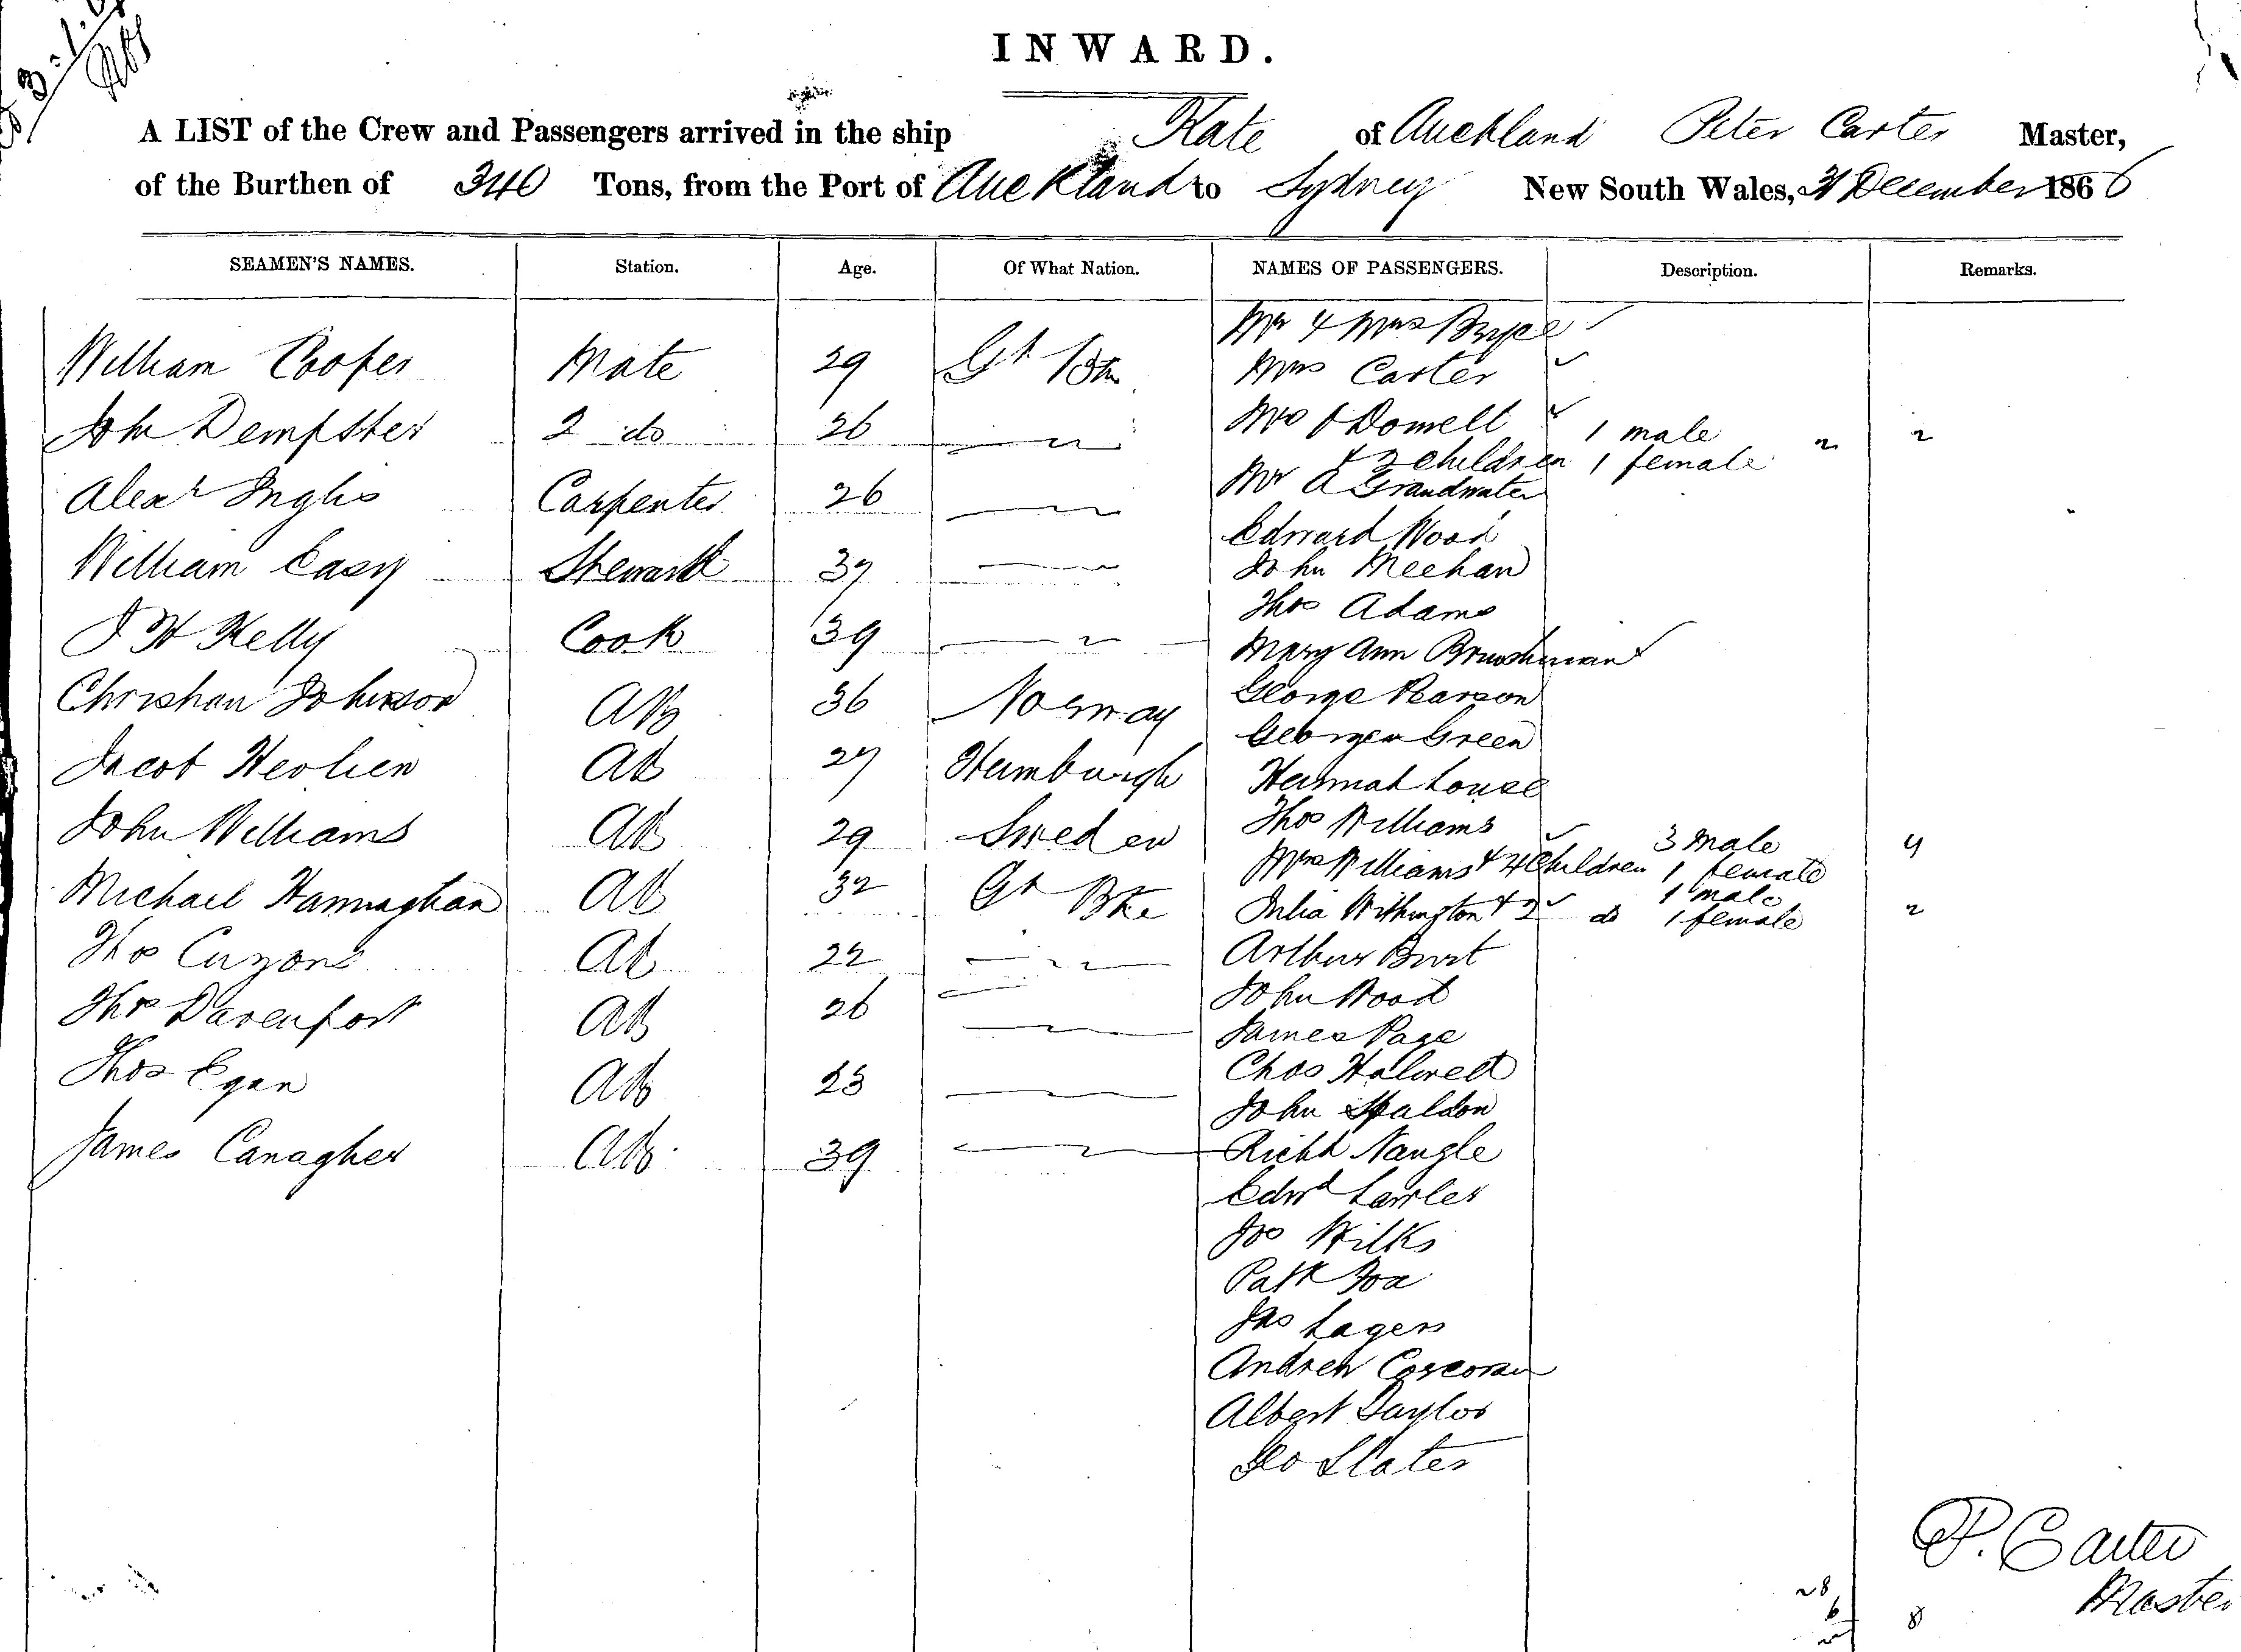 INWARD.
A LIST of the Crew and Passengers arrived in the ship Kate of Auckland Peter Carter Master,
of the Burthen of 340 Tons, from the Port of Auckland to Sydney New South Wales, 31 December 1866
SEAMEN'S NAMES. Station. Age. Of What Nation. NAMES OF PASSENGERS. Description. Remarks.
Mr & Mrs Bryce
William Cooper Mate 29 Gt Btn Mrs Carter
John Dempster 2 do 26 Mrs O'Donnell 1 male 2 2
& 2 children 1 female
Alexr Inglis Carpenter 26 Mr A Grandwater
Edward Wood
William Easy Steward 37 John Meehan
Thos Adams
J W Kelly Cook 39 Mary Ann
Christian Johnson AB 36 Norway George Pearson
George Green
Jacob AB 27 Hamburgh Hannah
Thos Williams
John Williams AB 29 Sweden 3 male 4
Mrs Williams & 4 Children 1 female
Michael Hannaghan AB 32 Gt 1 male
Julia Withington & 2 do 1 female 2
Thos AB 22 Arthur Burt
John Wood
Thos Davenport AB 26 James Page
Thos Egan AB 23 Chas Halwell
John Spaldon
James Canagher AB 39 Richd Nangle
Edwd Lawler
Jos Wilks
Patk Fox
Jas Lagers
Andrew Corcoran
Albert Taylor
Geo Slater
P. Carter
Master
28
6 8
2